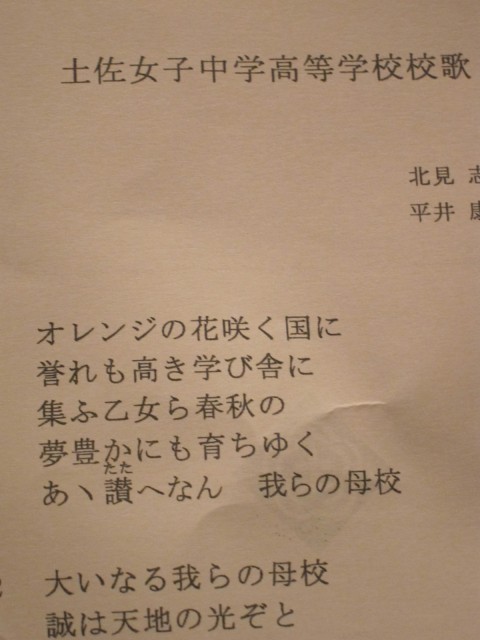 土佐女子中学高等学校校歌
北見 志
平井 康
オレンジの花咲く国に
誉れも高き学び舎に
集ふ乙女ら春秋の
夢豊かにも育ちゆく
たた
あヽ讃へなん 我らの母校
大いなる我らの母校
誠は天地の光ぞと